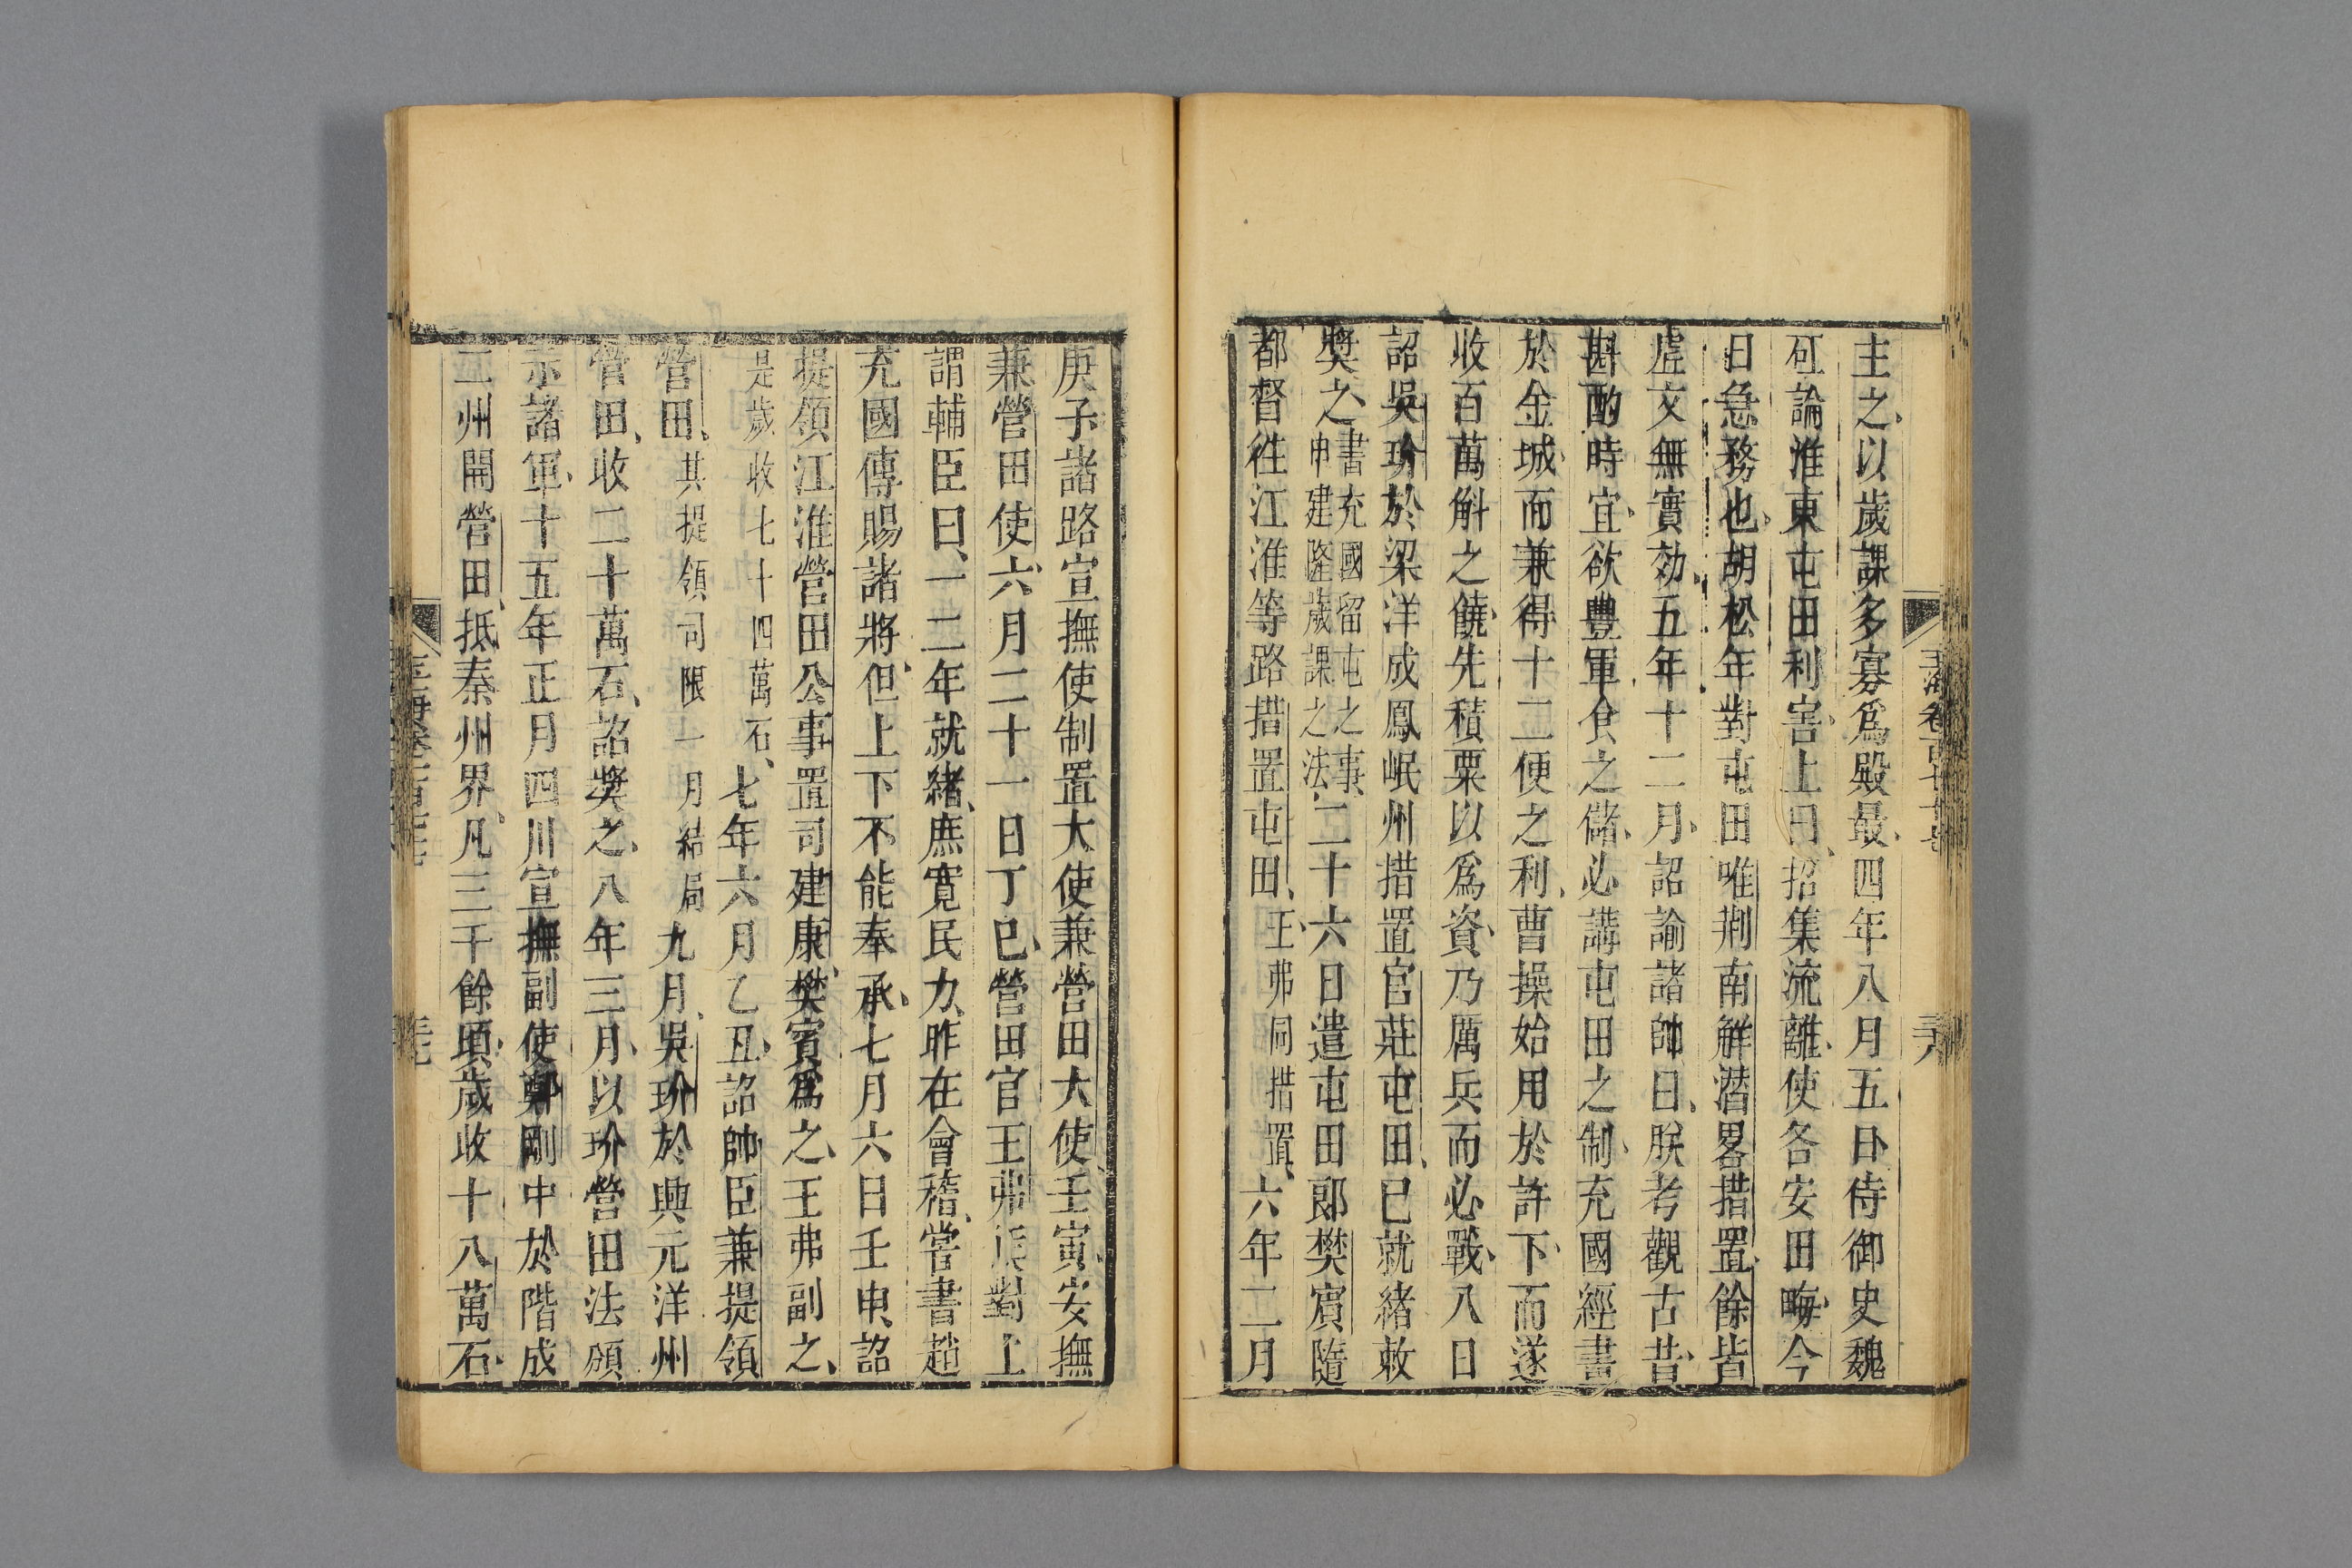 主之以歲課多寡爲殿最四年八月五日侍御史魏
矼論淮東屯田利害上曰招集流離使各安田畮今
日急務也胡松年對屯田唯荆南解潛畧措置餘皆
虛文無實効五年十二月詔諭諸帥曰朕考觀古昔
斟酌時宜欲豐軍食之儲必講屯田之制充國經畫
於金城而兼得十二便之利曹操始用於許下而遂
收百萬斛之饒先積粟以爲資乃厲兵而必戰八日
詔吳玠於梁洋成鳳岷州措置官莊屯田已就緒敕
獎之書充國留屯之事申建隆歲課之法二十六日遣屯田郎樊賓隨
都督往江淮等路措置屯田王弗同措置六年二月
庚子諸路宣撫使制置大使兼營田大使壬寅安撫
兼營田使六月二十一日丁巳營田官王弗對上
謂輔臣曰一二年就緒庶寬民力昨在會稽嘗書趙
充國傳賜諸將但上下不能奉承七月六日壬申詔
提領江淮營田公事置司建康樊賓爲之王弗副之
是歲收七十四萬石七年六月乙丑詔帥臣兼提領
營田其提領司限一月結局九月吳玠於興元洋州
營田收二十萬石詔獎之八年三月以玠營田法頒
示諸軍十五年正月四川宣撫副使鄭剛中於階成
二州開營田抵秦州界凡三千餘頃歲收十八萬石